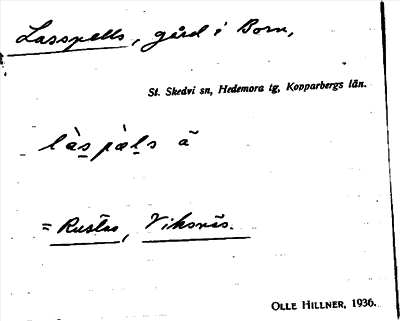 Lasspells, gård i Born,
St. Skedvi sn, Hedemora tg, Kopparbergs län.
làs̲pàl̲s ā
= Rustas, Viksnäs.
OLLE HILLNER, 1936.